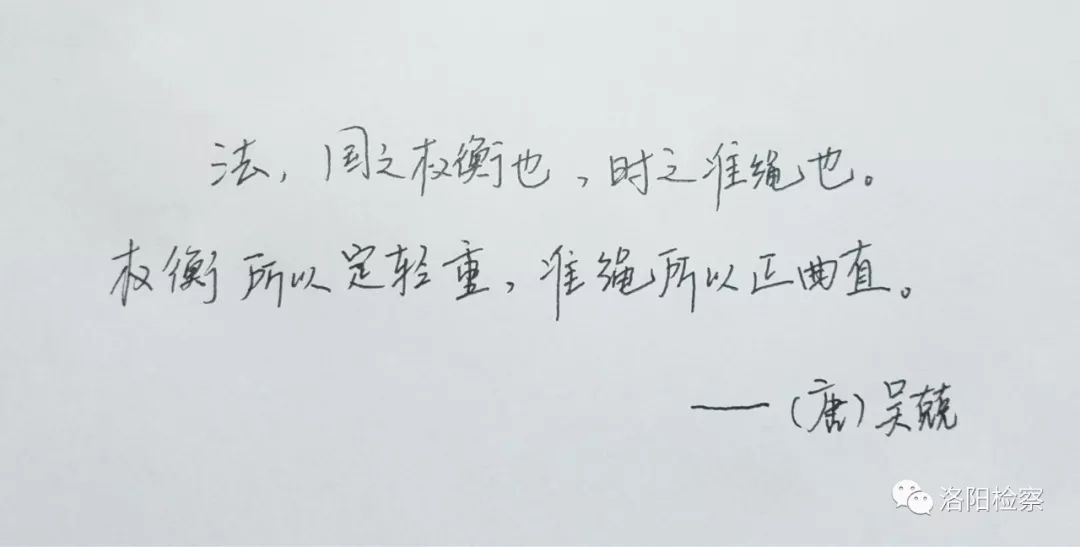 法，国之权衡也，时之准绳也。
权衡所以定轻重，准绳所以正曲直。
——(唐)吴兢
洛阳检察